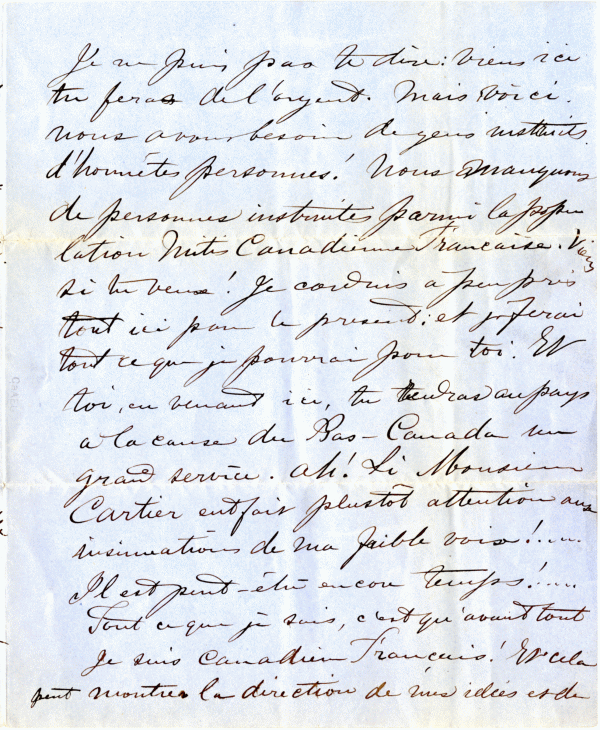 Je ne puis pas te dire: viens ici
tu feras de l'argent. Mais voici.
nous avons besoin de gens instruits
d'honnêtes personnes! Nous manquons
de personnes instruites parmi la popu
lation Mitis Canadienne Française. Viens
si tu veux! Je conduis a peu près
tout ici pour le present: et je ferai
tout ce que je pourrai pour toi. Et
toi, en venant ici, tu rendras au pays
a la cause du Bas-Canada un
grand service. Ah! Si Monsieur
Cartier eut fait plustôt attention aux
insinuations de ma faible voix!....
Il est peut-être encore temps!....
Tout ce que je sais, c'est qu'avant tout
Je suis Canadien Français! Et cela
peut montrer la direction de mes idées et de